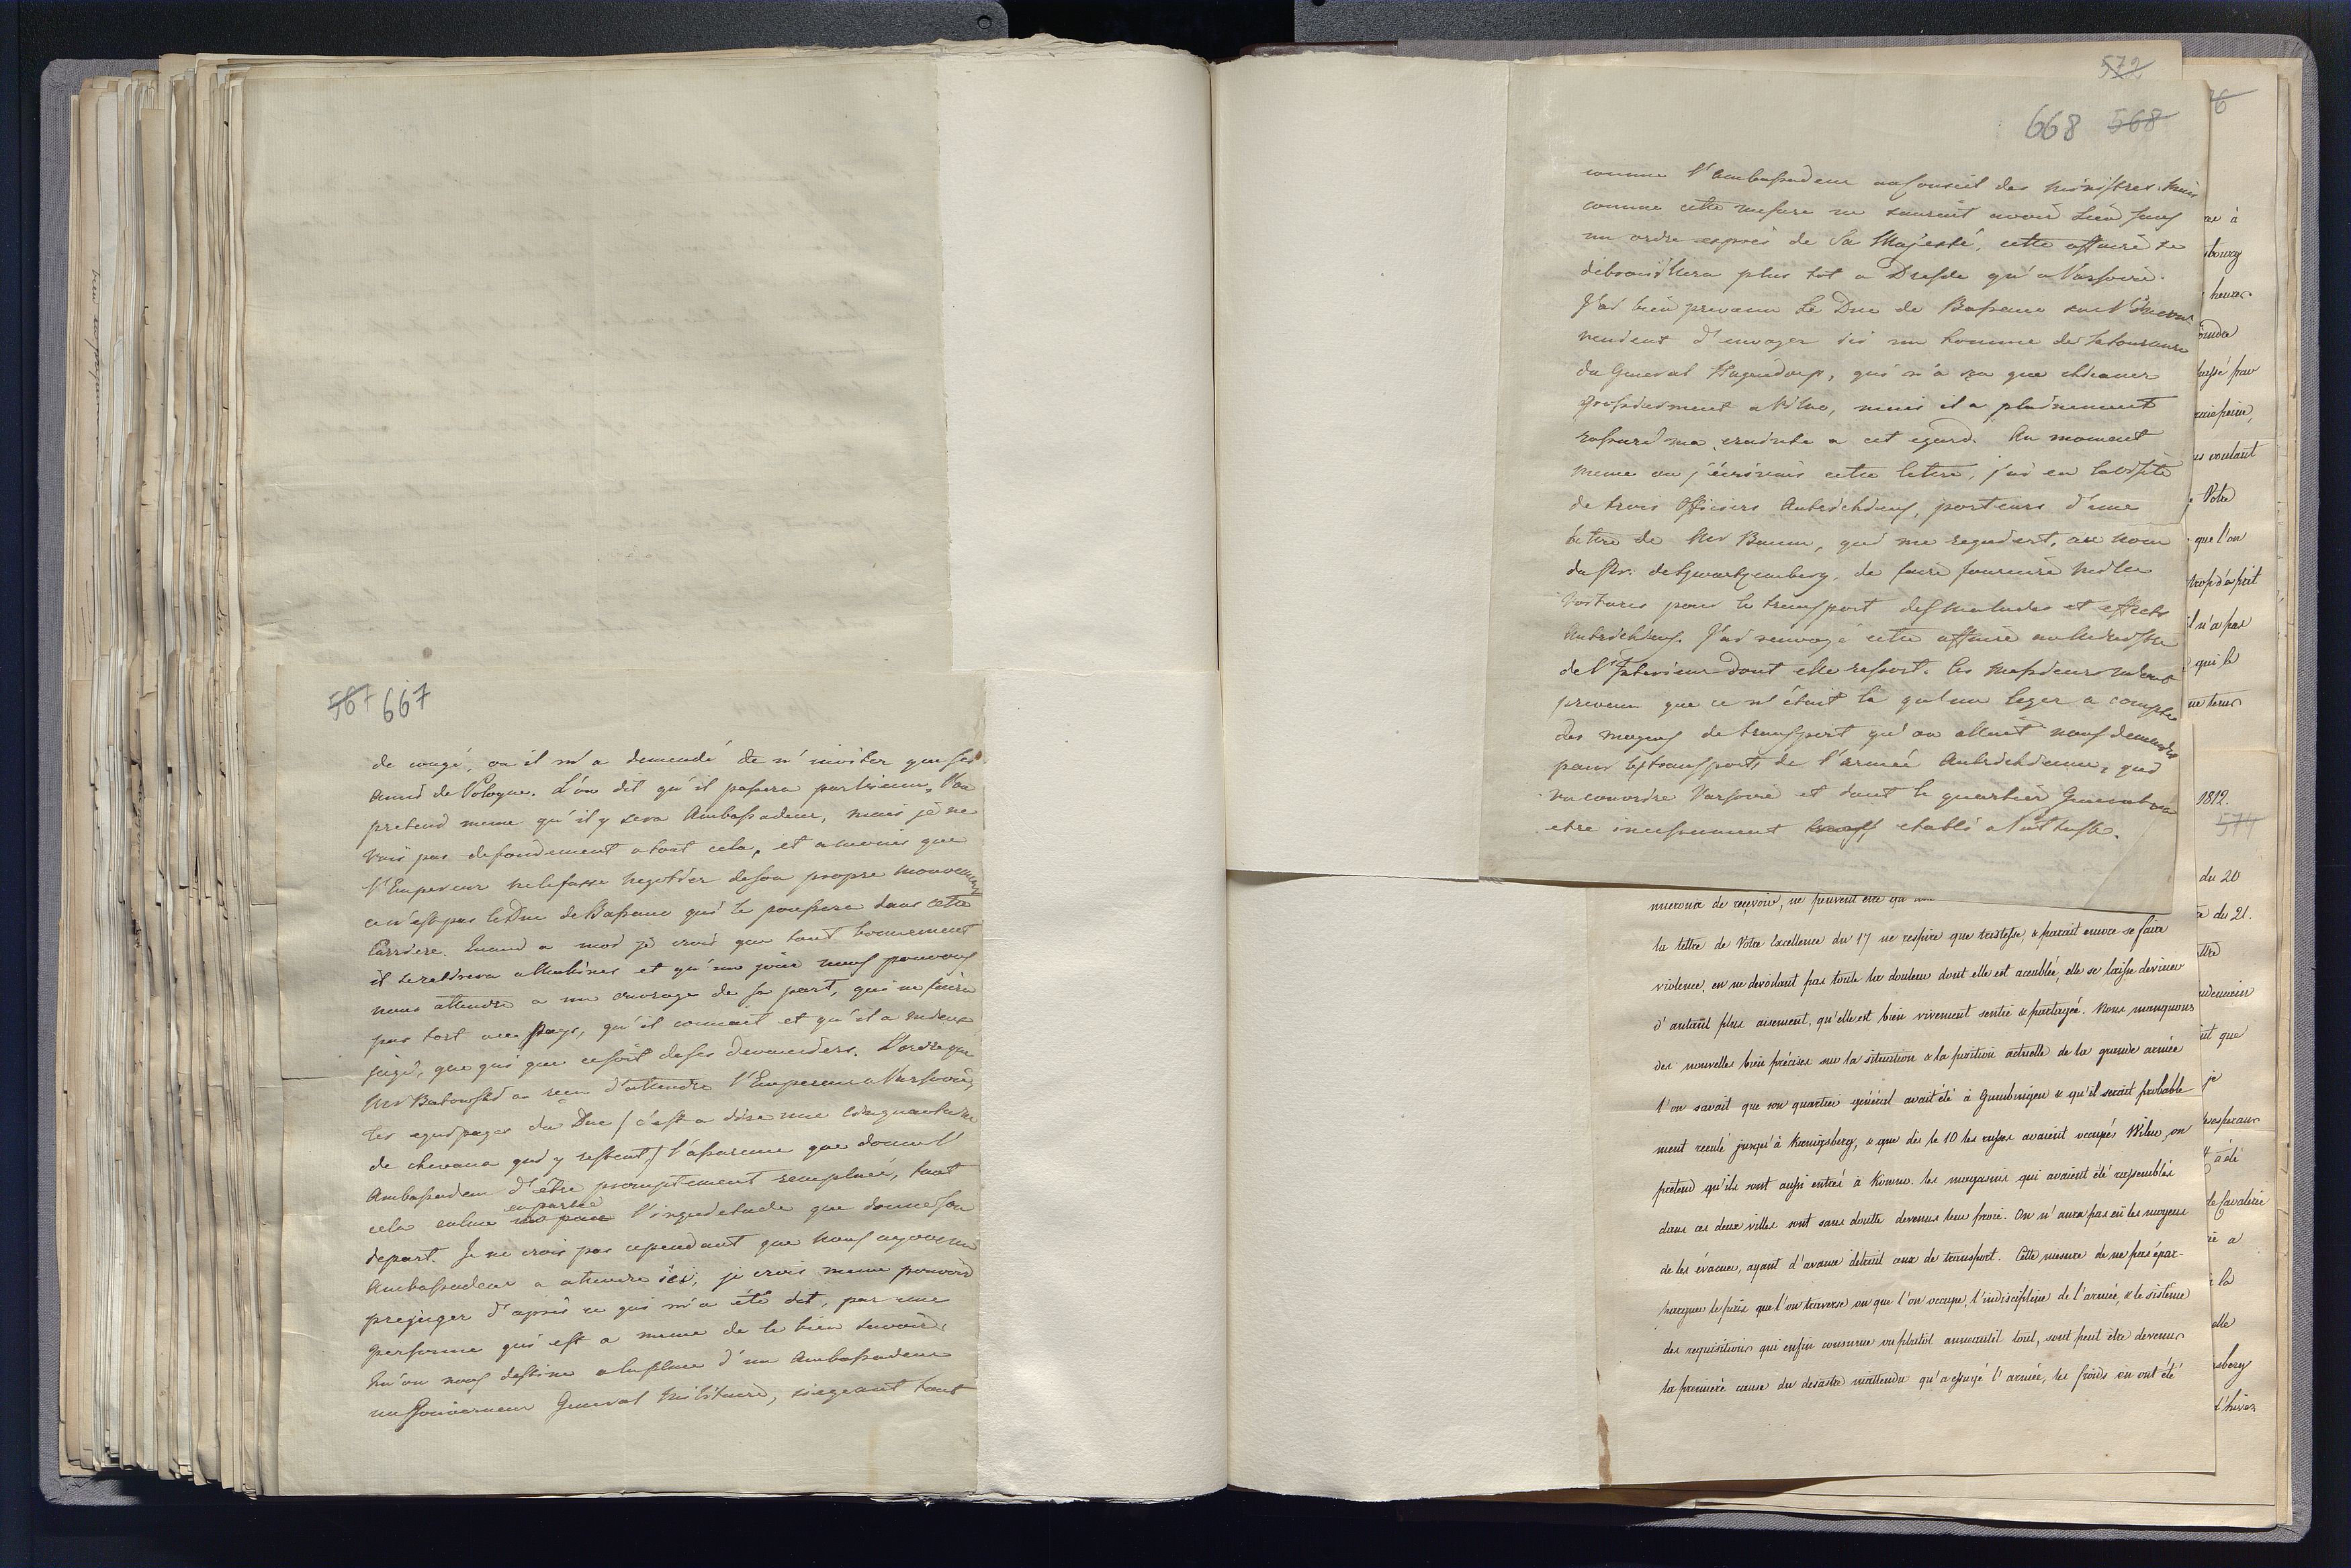 567 667
de congé, ou il m'a demandé de n'inviter que ses
amis de Pologne. L'on dit qu'il passera par Vienne, l'on
pretend meme qu'il y sera Ambassadeur, mais je ne
vois pas de fondement a tout cela, et a moins que
l'Empereur ne le fasse negotier de son propre mouvement
ce n'est pas le Duc de Bassano qui le poussera dans cette
Carriere. Quand a moi je crois que tout bonnement
il se retirera a Malines et qu'un jour nous pouvons
nous attendre a un ouvrage de sa part, qui ne faira
pas tort au pays, qu'il connait et qu'il a mieux
jugé, que qui que ce soit de ses devanciers. L'ordre que
Mr Batowski a reçu d'attendre l'Empereur a Varsovie,
les equipages du Duc /c'est a dire une cinquantaine
de chevaux qui y restent/ l'assurance que donne l'
Ambassadeur d'être promptement remplacé, tout
cela calme en partie l'inquietude que donne son
depart. Je ne crois pas cependant que nous ayons un
Ambassadeur a attendre ici, je crois meme pouvoir
prejuger d'après ce qui m'a été dit, par une
personne qui est a meme de le bien savoir,
qu'on nous destine a la place d'un Ambassadeur
un Gouverneur General Militaire, siegeant tout
572
668 568
comme l'Ambassadeur au Conseil des Ministres. Mais
comme cette mesure ne sauroit avoir lieu sans
un ordre exprès de Sa Majesté, cette affaire se
debrouillera plus tot a Dresde qu'a Varsovie.
J'ai bien prevenu le Duc de Bassano sur l'incon-
venient d'envoyer ici un homme de la tournure
du General Hogendorp, qui n'a su que chicaner
grossierement a Vilno, mais il a pleinement
rassuré ma crainte a cet egard. Au moment
meme ou j'écrivais cette lettre, j'ai eu la visite
de trois Officiers Autrichiens, porteurs d'une
lettre de Mr Baum, qui me requiert, au nom
du Pr. de Schwartzemberg, de faire fournir mille
Voitures pour le transport des malades et effets
Autrichiens. J'ai renvoyé cette affaire au Ministre
de l'Interieur dont elle ressort. Ces Messieurs m'ont
prevenu que ce n'étoit la qu'un leger a compte
des moyens de transport qu'on alloit nous demander
pour les transports de l'armée Autrichienne, qui
va couvrir Varsovie et dont le quartier General va
etre incessamment etabli a Pultusk.
la lettre de Votre Excellence du 17 ne respire que tristesse, & parait encore se faire
violence, en ne devoilant pas toute la douleur dont elle est accablée, elle se laisse deviner
d'autant plus aisement, qu'elle est bien vivement sentie & partagée. Nous manquons
des nouvelles bien précises sur la situation & la position actuelle de la grande armée
l'on savait que son quartier général avait été à Gumbingen & qu'il serait probable
ment reculé jusqu'à Kœnigsberg, & que dès le 10 les russes avaient occupés Wilna, on
pretend qu'ils sont aussi entrés à Kowno. les magasins qui avaient été rassemblés
dans ces deux villes sont sans doute devenus leur proie. On n'aura pas eu les moyens
de les évacuer, ayant d'avance détruit ceux de transport. Cette mesure de ne pas épar-
le païs que l'on traverse ou que l'on occupe, l'indiscipline de l'armée, & le sistême
des requisitions qui enfin consume ou plutôt anneantit tout, sont peut être devenus
la première cause du desastre inattendu qu'a essuyé l'armée, les froids en ont été
heures
voulant
Votre
que l'on
trop d'esprit
il n'a pas
qui le
1812.
574
du 20
du 21.
que
je
a été
de Cavalerie
a
la
d'hiver